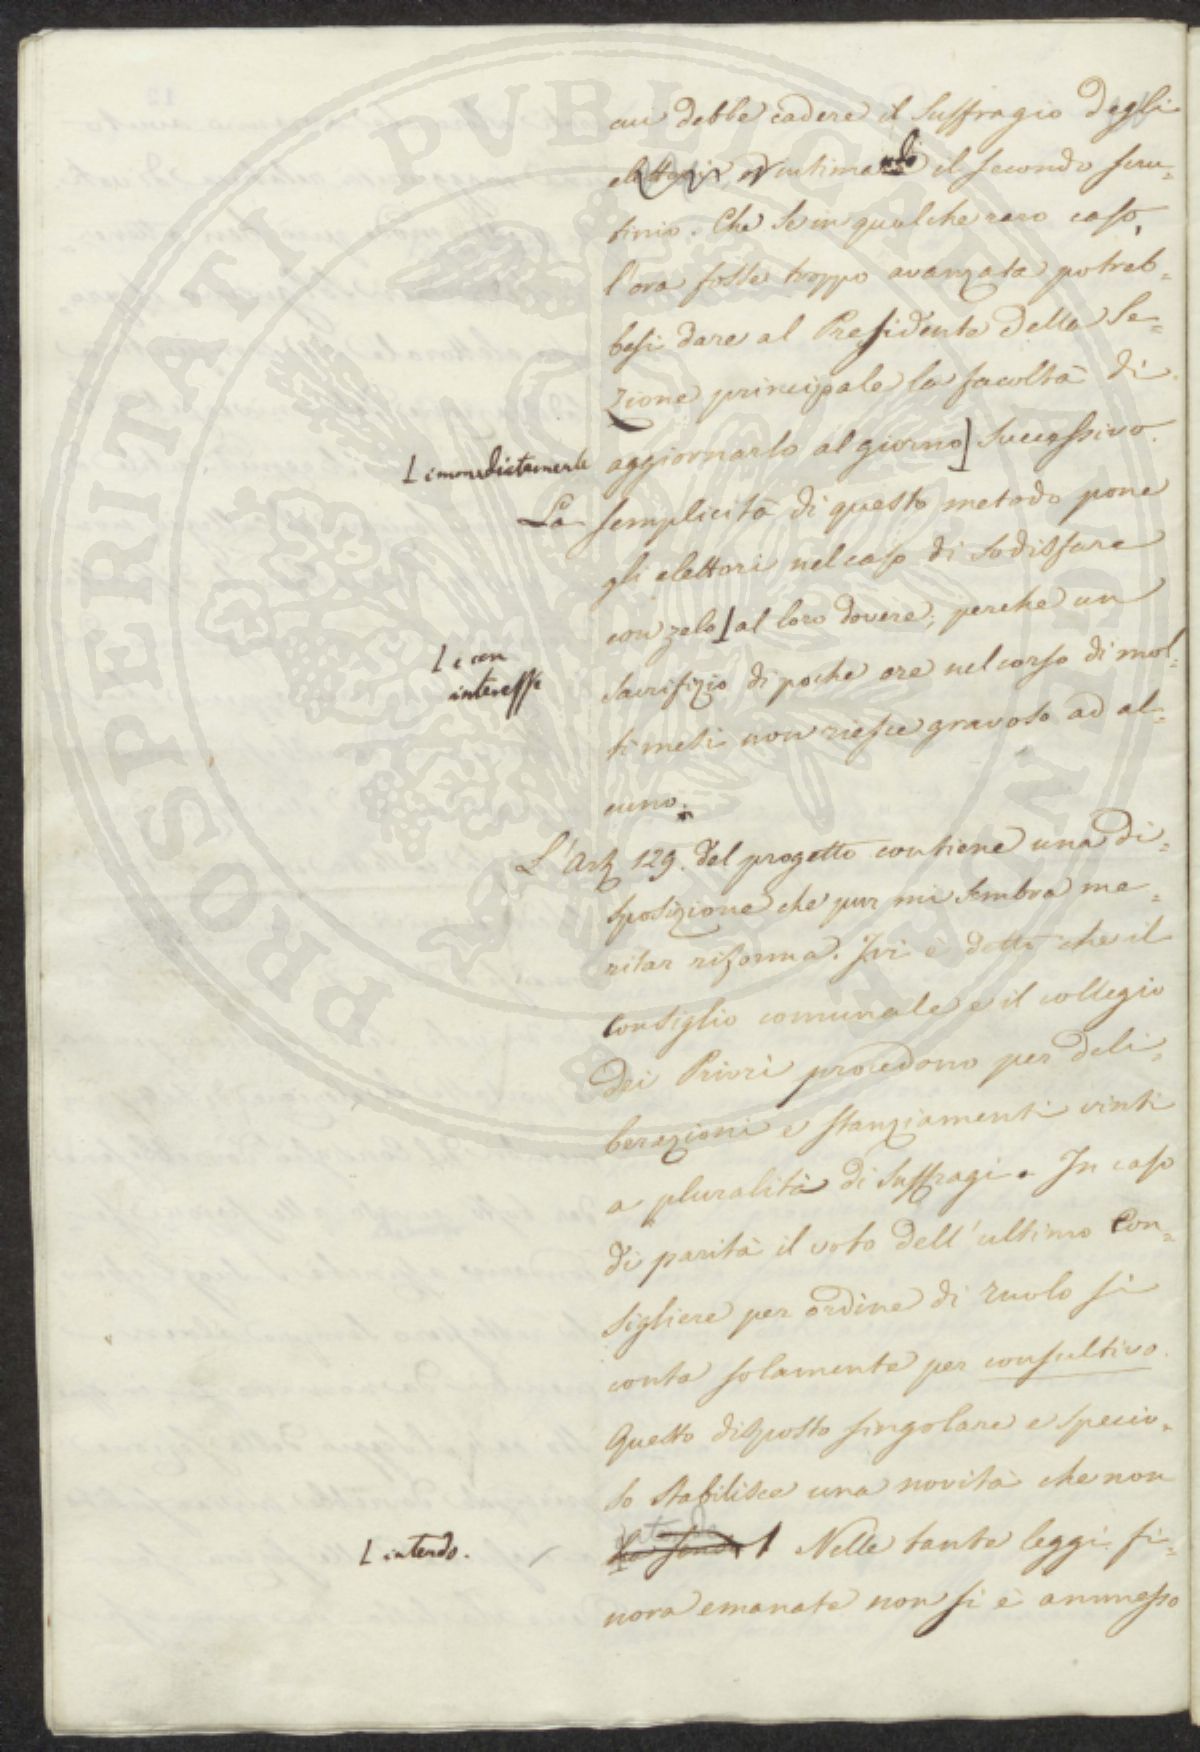 cui debbe cadere il suffragio degli
elettori, ed intimando il secondo scru-
tinio. Che se in qualche raro caso,
l'ora fosse troppo avanzata potreb-
besi dare al Presidente della Se-
zione principale la facoltà di
aggiornarlo al giorno] successivo.
L immediatamente
La semplicità di questo metodo pone
gli elettori nel caso di sodisfare
con zelo] al loro dovere; perchè un
L e con
interesse
sacrifizio di poche ore nel corso di mol-
ti mesi non riesce gravoso ad al-
cuno.
L'Art 129. del progetto contiene una di-
sposizione che pur mi sembra me-
ritar riforma. Ivi è detto che il
Consiglio comunale e il collegio
dei Priori procedono per deli-
berazioni e stanziamenti vinti
a pluralità di suffragi. In caso
di parità il voto dell'ultimo Con-
sigliere per ordine di ruolo si
conta solamente per consultivo.
Questo disposto singolare e specio-
so stabilisce una novità che non
L intendo.
Nelle tante leggi fi-
nora emanate non si è ammesso
PROSPERITATI PVBLICAE AVGENDAE